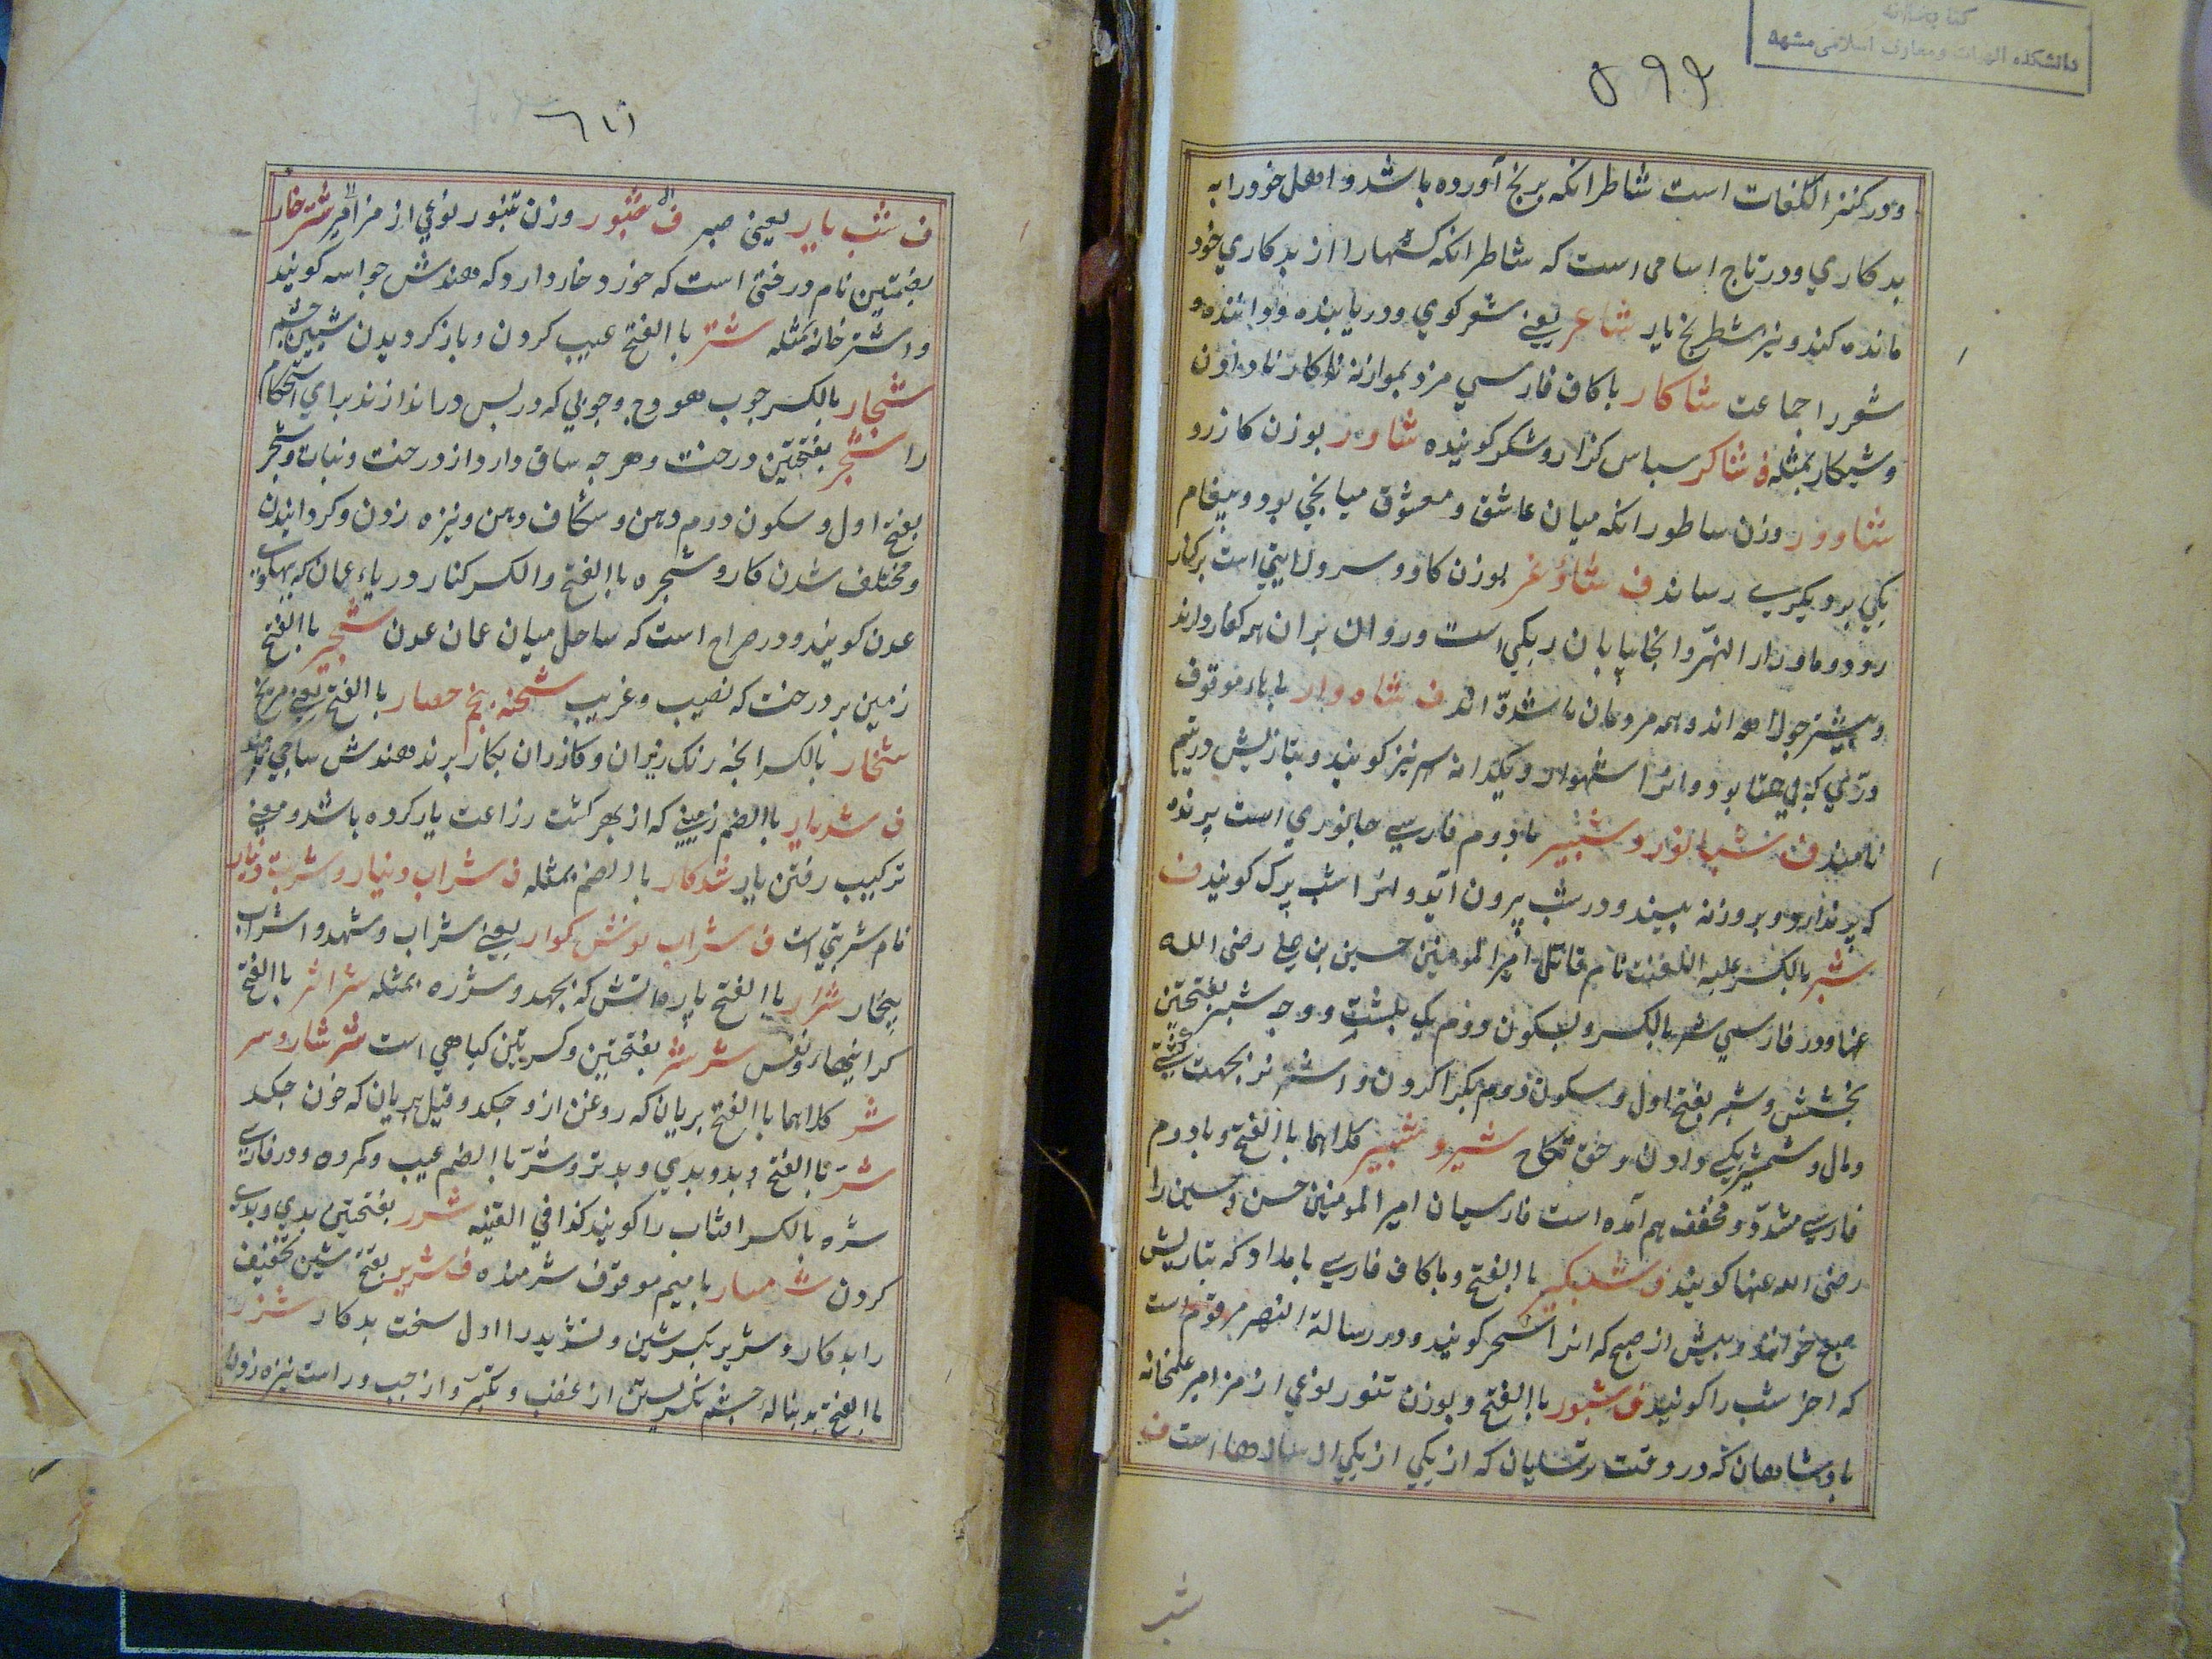 کتابخانه
دانشکده الهیات و معارف اسلامی مشهد
۵۹۹
ودر کنز اللغات است شاطر انکه برنج آورده باشد و اهل خود را به
بدکاري ودر تاج اسامی است که شاطر انکه کسهارا از بدکاري خود
مانده کند و نیز شطرنج باید شاعر یعنے شعر کوي و دریابنده و دانسنده
شعر را جماعت شاکار باکاف فارسي مزد بموازنه ناکار نادادن
وشیکار بمثله ف شاکر سباس کذار و شکر کوینده شاور بوزن کازرو
شاوور وزن ساطور انکه میان عاشق و معشوق میانجي بود و پیغام
یکي بر دیکرے رساند ف شاوغر بوزن کاووسر ولایتي است برکنار
رود و ماوراء النهر و انجا بیابان ریکي است و روان بران همه کفار دارند
و بیشتر جولاهه اند و همه مردمان ما شده اند ف شاه وار با ها موقوف
درّي که بي همتا بود و انرا شهوار و یکدانه هم نیز کویند و بتازیش در یتیم
نامند ف شپانور و شبپر با دوم فارسے جانوري است پرنده
که پر ندارد و بروز نه بیند و در شب بیرون آید و انرا شب پرک کویند ف
شبر بالکسر علیه اللعنت نام قاتل امیر المومنین حسین بن علي رضی الله
عنها و در فارسي شبر بالکسر و بسکون دوم یک بلشت و وجه شبر بفتحتین
بخشش و شبر بفتح اول و سکون دوم بکرا کردن و اشتر نر بجهت کشنے
و مال و شمشیر یکے دادن و حق نکاح شبر و شبیر کلاهما با الفتح و با دوم
فارسے مشدد و مخفف هم آمده است فارسیان امیر المومنین حسن و حسین را
رضی الله عنها کویند ف شبکیر با الفتح و با کاف فارسے بامداد که بتازیش
صبح خوانند و پیش از صبح که انرا سحر کویند و در رسالة النصر مرقوم است
که اخر شب را کویند ف شبور با الفتح و بوزن تنور نوعي از مزامیر علمخانه
بادشاهان که در وقت
شب
٦۱۱
ف شب یار یعنی صبر ف شبور وزن تنبور نوعي از مزامیر شتر خار
بضمتین نام درختی است که خورد خار دارد که هندش جواسه کویند
واشتر خار بمثله شتر با الفتح عیب کردن و باز کردیدن شیبین چشم
شجار بالکسر جوب هودج و جوبي که در پس در اندازند براي استحکام
را شجر بفتحتین درخت و هرجه ساق دارد از درخت و نبات و شجر
بفتح اول و سکون دوم دهن و شکاف دهن و نیزه زدن و کردانیدن
و مختلف شدن کار و شجره با الفتح و الکسر کنار دریاے عمان که
عدن کویند و در صراح است که ساحل میان عمان عدن شجیر با الفتح
زمین پر درخت که نصیب و غریب شحنه پنج حصار با الفتح یعنے مریخ
شخار بالکسر انجه رنک ریزان و کازران بکار برند هندش ساجي
ف شدیار با الضم زمینے که از بهر کشت زراعت یار کرده باشد و معنے
ترکیب رفتن یار شدکار با الضم بمثله ف شراب دنیار و شربت دنیار
نام شربتي است ف شراب نوش کوار یعنے شراب و شهد و اشراب
بیخار شرار با الفتح پاره اتش که بجهد و شراره بمثله شراشر با الفتح
کرانیها و نفس شرشر بفتحتین و کسرتین کیاهي است شرشار و سر
شر کلاهما با الفتح بریان که روغن ازو جکد و قیل بریان که خون جکد
شر با الفتح بد و بدي و بدتر و شر با الضم عیب و مکروه و در فارسے
شره بالکسر افتاب را کویند کذا في القنیه شرر بفتحتین بدي و بدے
کردن شرمسار با میم موقوف شرمنده ف شریر بفتح شین تخفیف
را بدکار و شریر بکسر شین و تشدید را اول سخت بدکار شزر
با الفتح بدنباله جشم نکریستن از غضب و تکبر و از جب و راست نیزه زدن